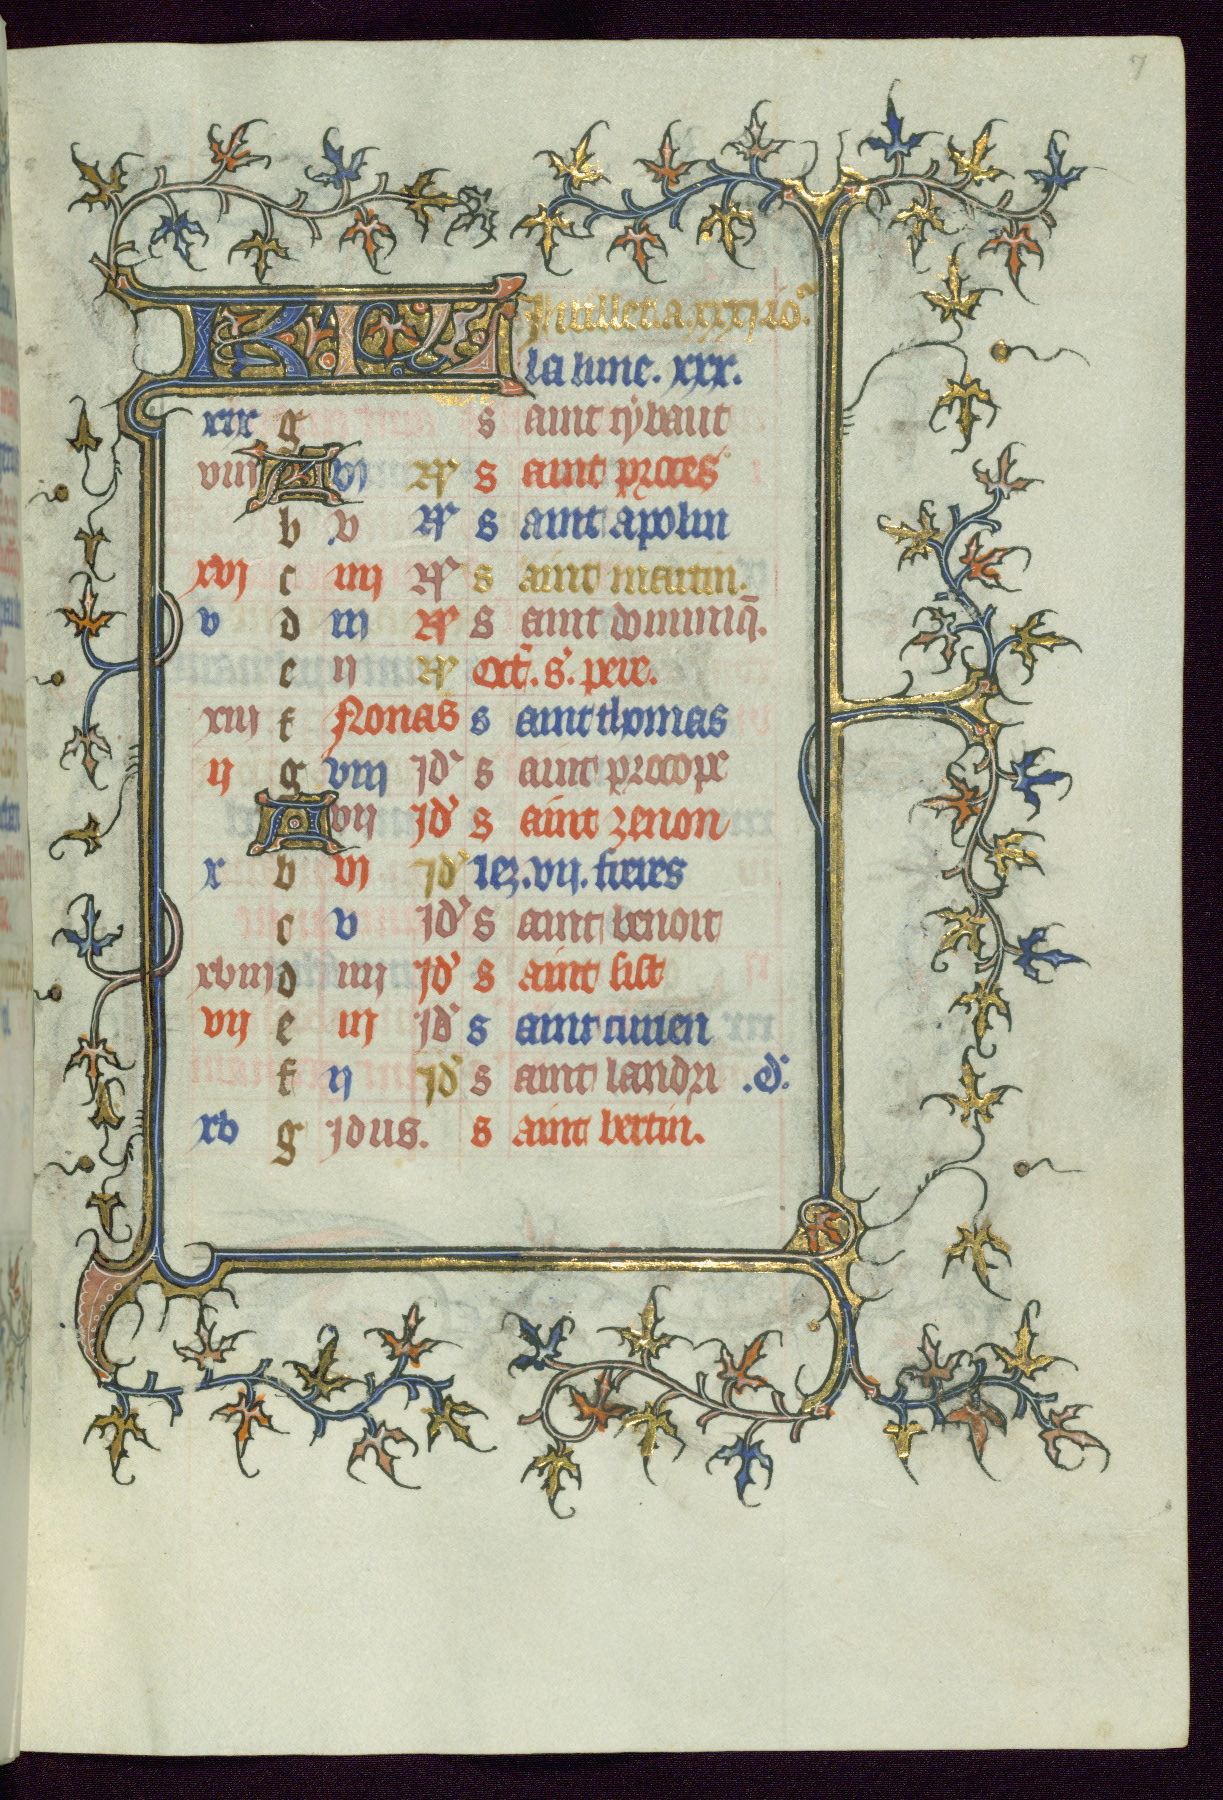 7
KL Juillet a. xxxj. io᷑.
la lune. xxx.
xix g s aint tybaut
viij A vj N᷑ s aint proces
b v N᷑ s aint apolin
xvj c iiij N᷑ s aint martin.
v d iij N᷑ s aint dominiq̃.
e ij N᷑ Oct̃. s᷑. pere.
xiij f Nonas s aint thomas
ij g viij jd᷑ s aint procopr
A vij jd᷑ s aint zenon
x b vj jd᷑ lez. vij. freres
c v jd᷑ s aint benoit
xviij d iiij jd᷑ s aint sist
vij e iij jd᷑ s aint
f ij jd᷑ s aint landri .d᷑.
xv g jdus. s aint bertin.